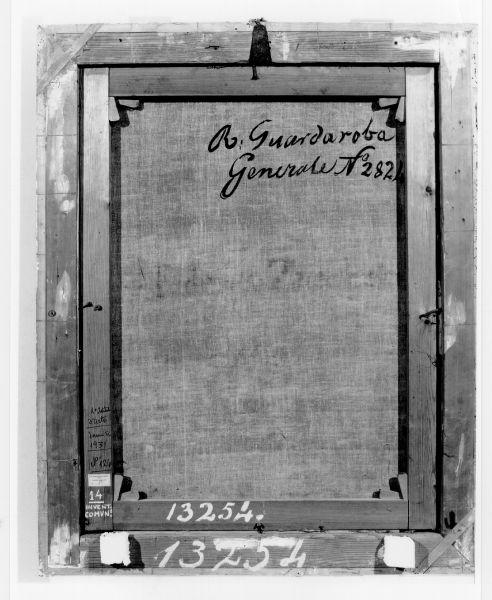 R. Guardaroba
Generale Nº 282
1931
14
INVENT.
COMUN.
13254.
13254